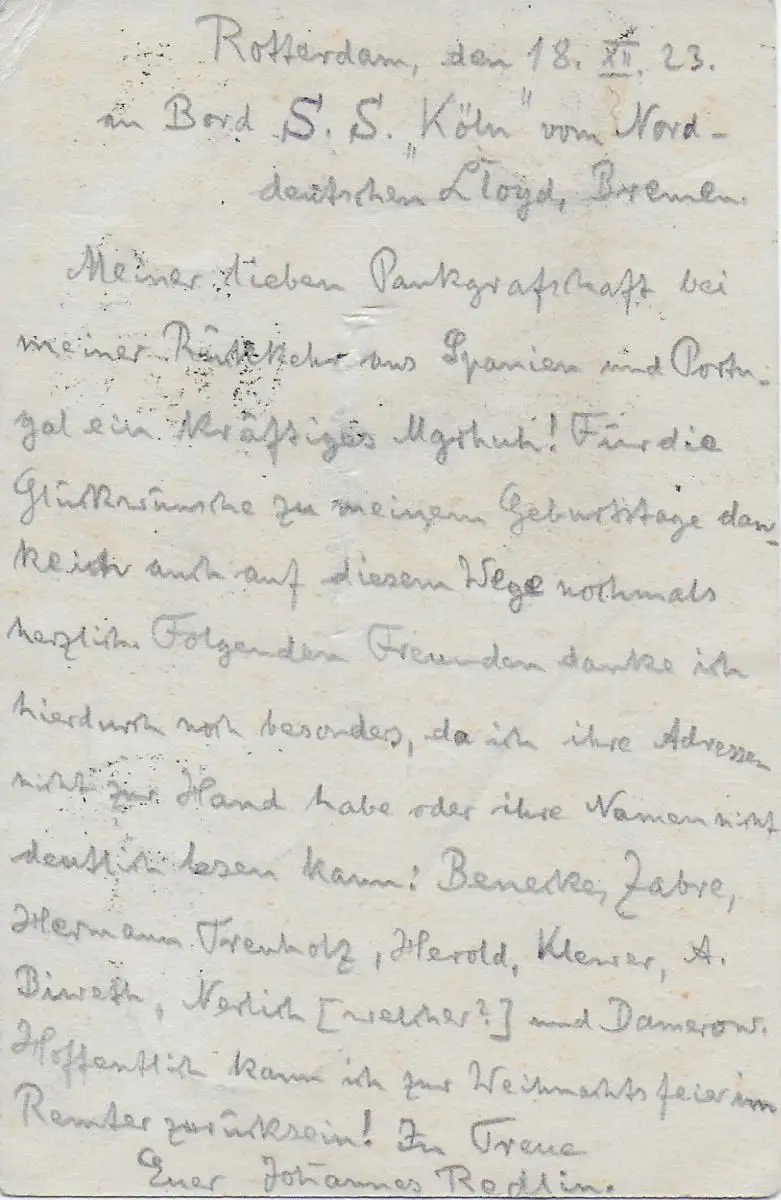 Rotterdam, den 18. XII. 23.
an Bord S. S. „Köln" vom Nord-
deutschen Lloyd, Bremen.
Meiner lieben Pankgrafschaft bei
meiner Rückkehr aus Spanien und Portu-
gal ein kräftiges Mgrhuh! Für die
Glückwünsche zu meinem Geburtstage dan-
ke ich auch auf diesem Wege nochmals
herzlich. Folgenden Freunden danke ich
hierdurch noch besonders, da ich ihre Adressen
nicht zur Hand habe oder ihre Namen nicht
deutlich lesen kann: Benecke, Zabre,
Hermann Treuholz, Herold, Klewer, A.
Nerlich [welcher?] und Damerow.
Hoffentlich kann ich zur Weihnachtsfeier im
Remter zurücksein! In Treue
Euer Johannes Redlin.